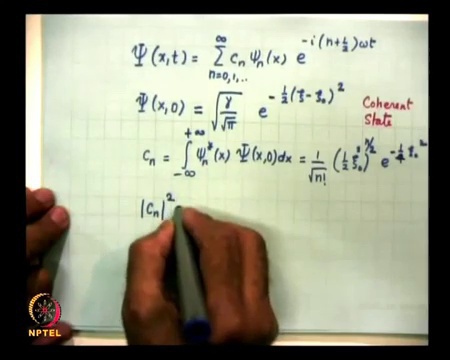 Ψ(x,t) = ∑_{n=0,1,..}^{∞} c_n ψ_n(x) e^{-i(n+½)ωt}
Ψ(x,0) = √(γ/√π) e^{-½(ξ-ξ₀)²} Coherent State
c_n = ∫_{-∞}^{+∞} ψ_n*(x) Ψ(x,0)dx = 1/√n! (½ξ₀²)^{n/2} e^{-¼ξ₀²}
|c_n|²
NPTEL